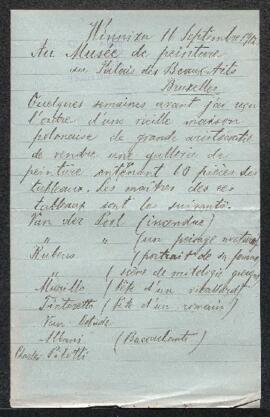 Winnixa 16 Septembre 1912
Au Musée de peinture
au Palais des Beaux-Arts
Bruxelles
Quelques semaines avant j'ai reçu
l'ordre d'une vieille maison
polonaise de grande aristocratie
de vendre une gallerie de
peinture contenant 60 pièces des
tableaux. Les maîtres des ces
tableaux sont les suivants:
Van der Poel (incendue)
" " (un peisage nocturne)
Rubens (portrait de sa femme)
" (scène de mitologie grecque)
Murillo (tête d'un
Tintoretto (tête d'un romain)
Van Ostade
Albani (Bacchante)
Charles